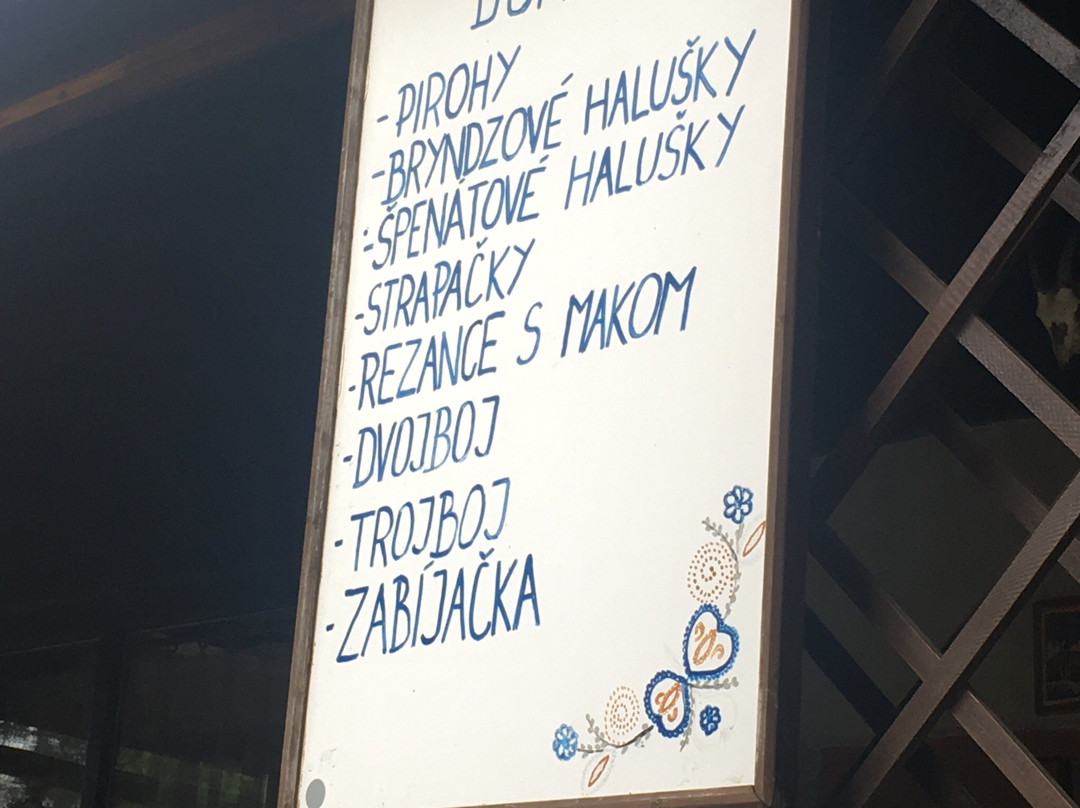 -PIROHY
-BRYNDZOVÉ HALUŠKY
-ŠPENÁTOVÉ HALUŠKY
-STRAPAČKY
-REZANCE S MAKOM
-DVOJBOJ
-TROJBOJ
-ZABÍJAČKA